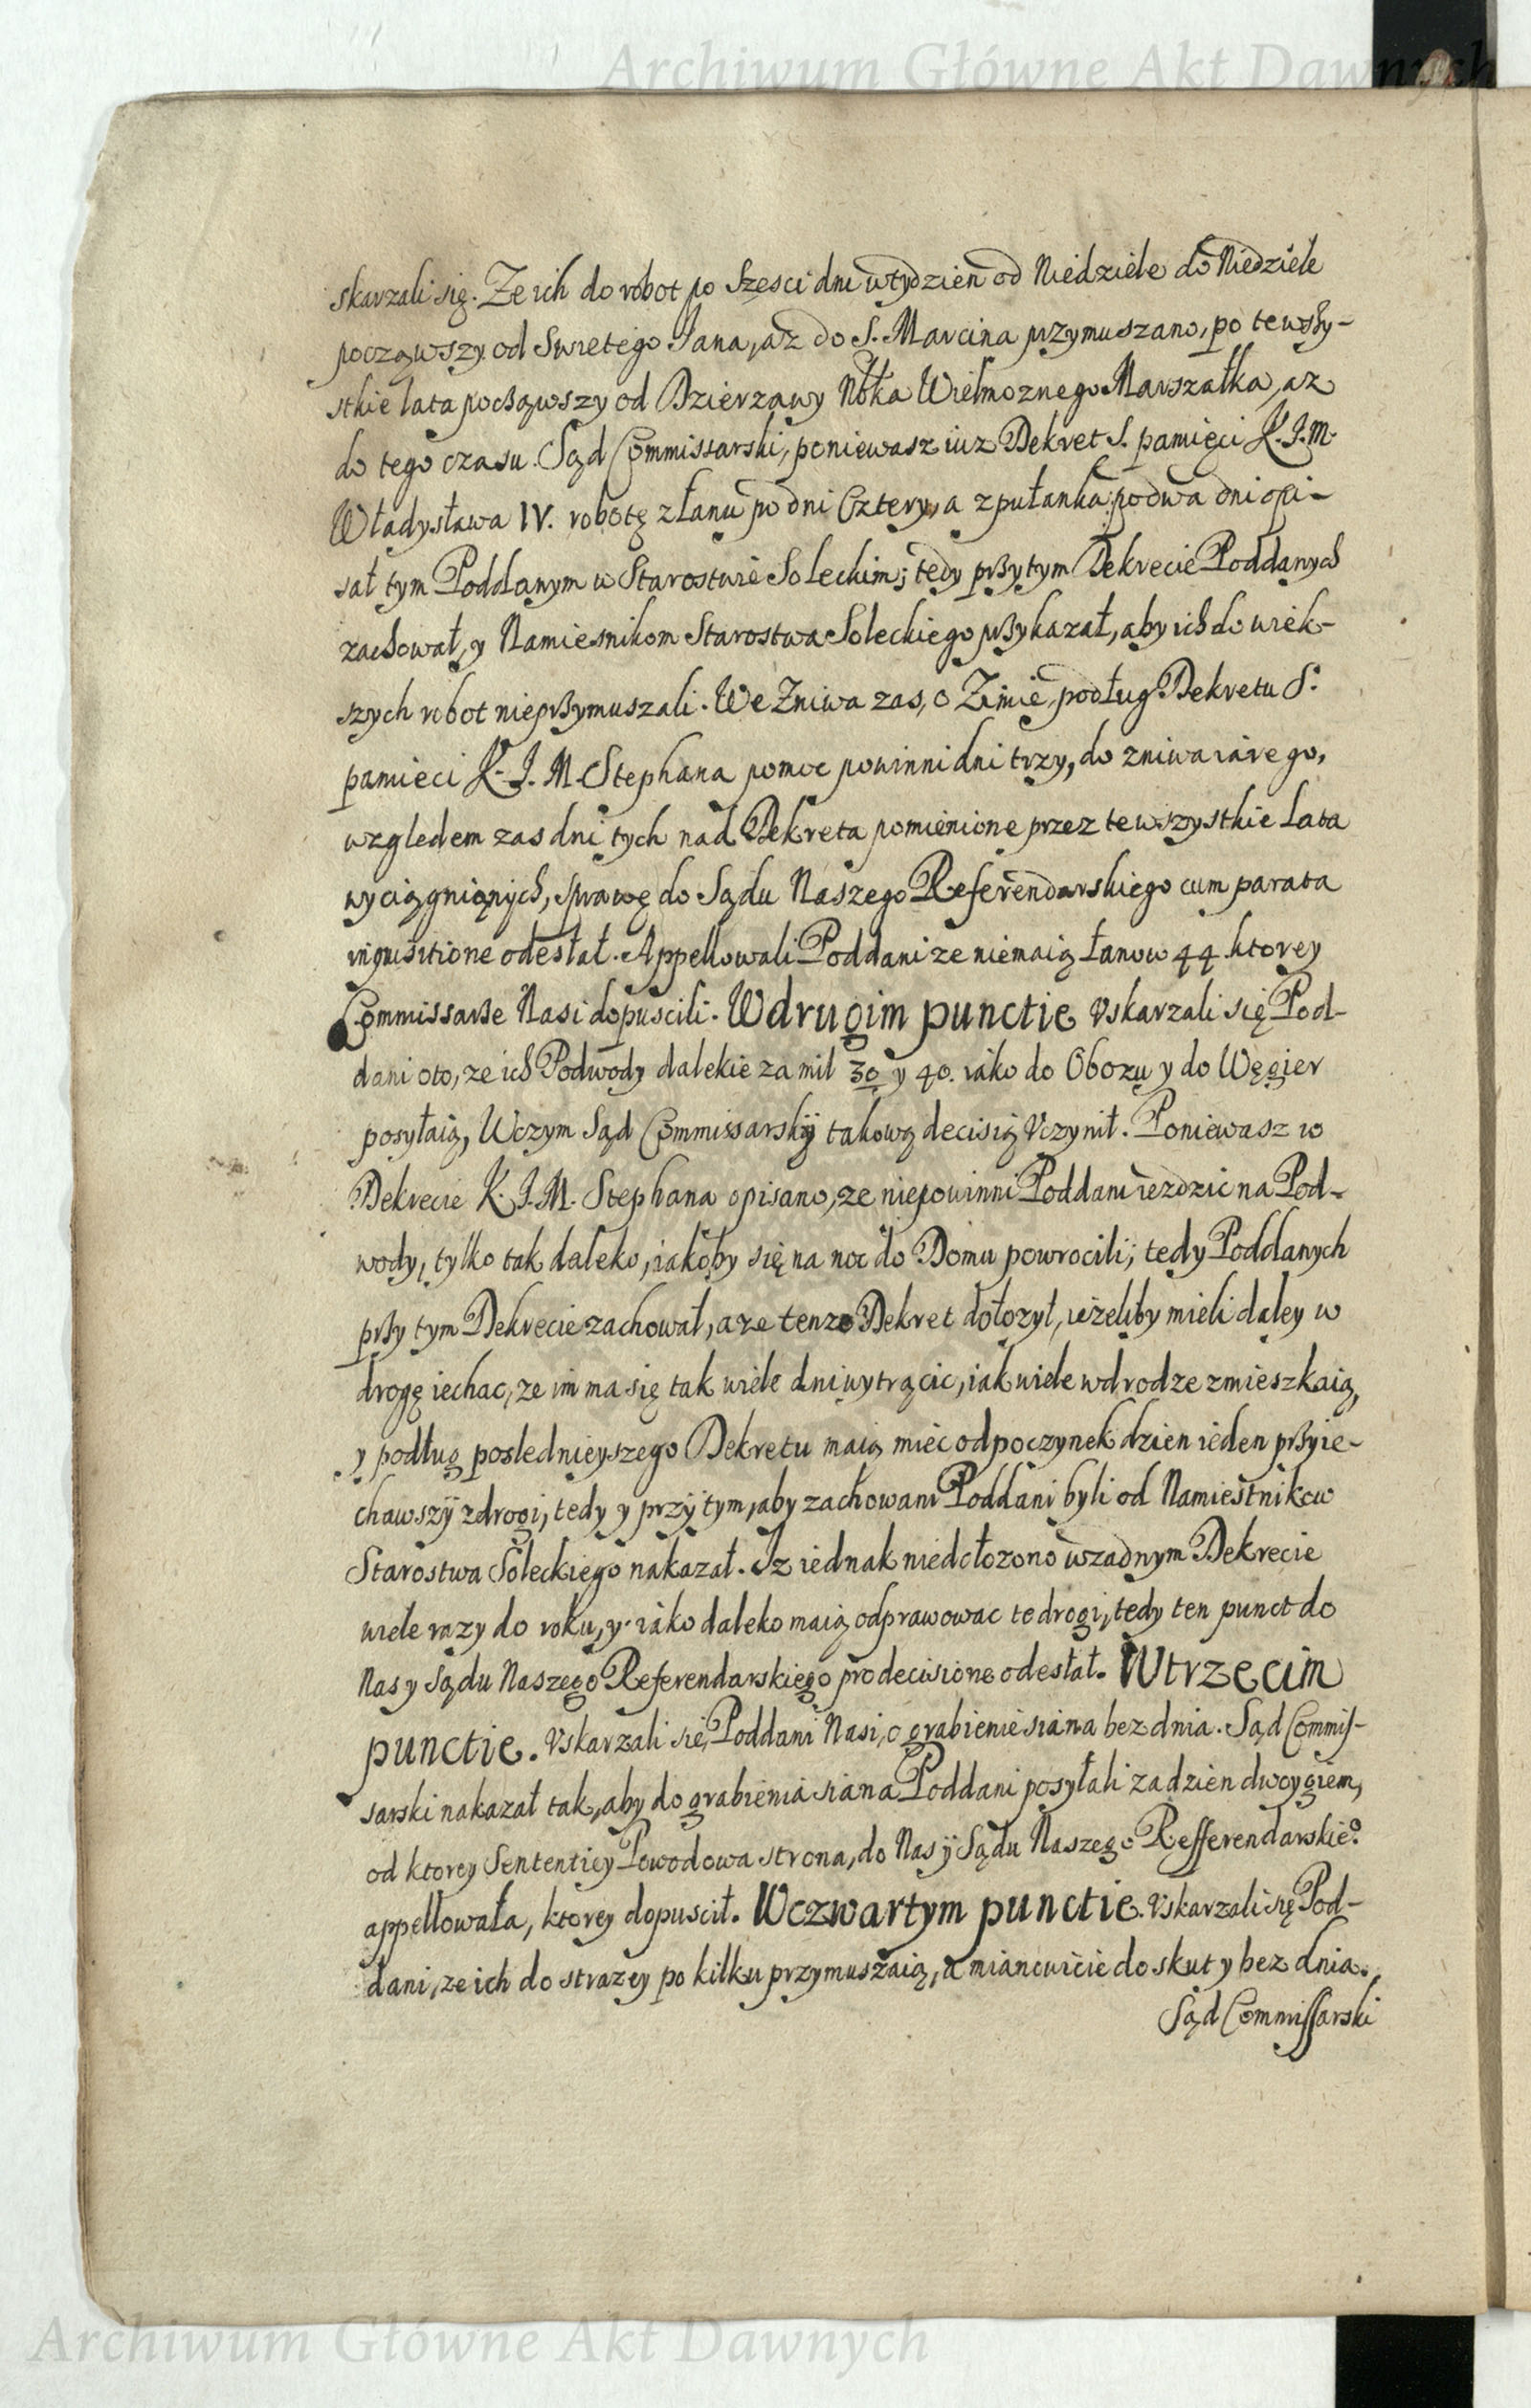 Archiwum Główne Akt Dawnych
skarzali się. Ze ich do robot po szesci dni w tydzien od Niedziele do Niedziele
począwszy od Swietego Jana, az do S. Marcina przymuszano, po te wszy-
stkie lata począwszy od Dzierzawy Wielmoznego Marszałka, az
do tego czasu. Sąd Commissarski, poniewasz iuz Dekret S. pamięci K. J. M.
Władysława IV. robotę z łanu po dni cztery, a z pułanka po dwa dni opi-
sał tym Poddanym w Starostwie Soleckim; tedy przy tym Dekrecie Poddanych
zachował, y Namiesnikom Starostwa Soleckiego przykazał, aby ich do wiek-
szych robot nieprzymuszali. We Zniwa zas, o Zimie, podług Dekretu S.
pamieci K. J. M. Stephana pomoc powinni dni trzy, do zniwa iarego,
wzgledem zas dni tych nad Dekreta pomienione przez te wszystkie lata
wyciągnionych, sprawę do Sądu Naszego Referendarskiego cum parata
inquisitione odesłał. Appellowali Poddani ze niemaią łanow 44. ktorey
Commissarze Nasi dopuscili. W drugim punctie Vskarzali się Pod-
dani oto, ze ich Podwody dalekie za mil 30 y 40. iako do Obozu y do Węgier
posyłaią, W czym Sąd Commissarskÿ takową decisią Vczynił. Poniewasz w
Dekrecie K. J. M. Stephana opisano, ze niepowinni Poddani iezdzic na Pod-
wody, tylko tak daleko, iakoby się na noc do Domu powrocili; tedy Poddanych
przy tym Dekrecie zachował, a ze tenze Dekret dołozył, iezeliby mieli daley w
drogę iechac, ze im ma się tak wiele dni wytrącic, iak wiele w drodze zmieszkaią,
y podług poslednieyszego Dekretu maią miec odpoczynek dzien ieden przyie-
chawszÿ z drogi, tedy y przÿ tym, aby zachowani Poddani byli od Namiestnikow
Starostwa Soleckiego nakazał. Iz iednak niedołozono w zadnym Dekrecie
wiele razy do roku, y iako daleko maią odprawowac te drogi, tedy ten punct do
Nas y Sądu Naszego Referendarskiego pro decisione odesłał. W trzecim
punctie. Vskarzali się, Poddani Nasi, o grabienie siana bez dnia. Sąd Commis-
sarski nakazał tak, aby do grabienia siana Poddani posyłali za dzien dwoygiem,
od ktorey Sententiey Powodowa strona, do Nas ÿ Sądu Naszego Refferendarskie?
appellowała, ktorey dopuscił. W czwartym punctie. Vskarzali się Pod-
dani, ze ich do strazey po kilku przymuszaią, a mianowicie do skut y bez dnia.
Sąd Commissarski
Archiwum Główne Akt Dawnych